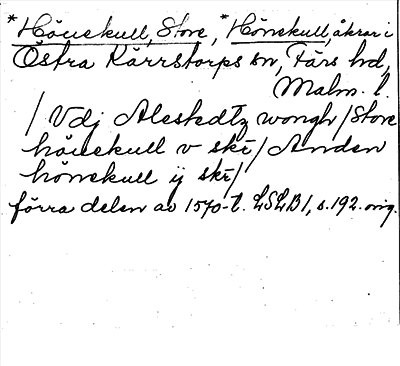 *Hönekull, Store, *Hönskull, åkrar i
Östra Kärrstorps sn, Färs hd,
Malm. l.
/ Vdj Alestedtz wongh / Store
hönekull v ske / Anden
hönskull ij ske /
förra delen av 1570-t. LSLB 1, s. 192. orig.